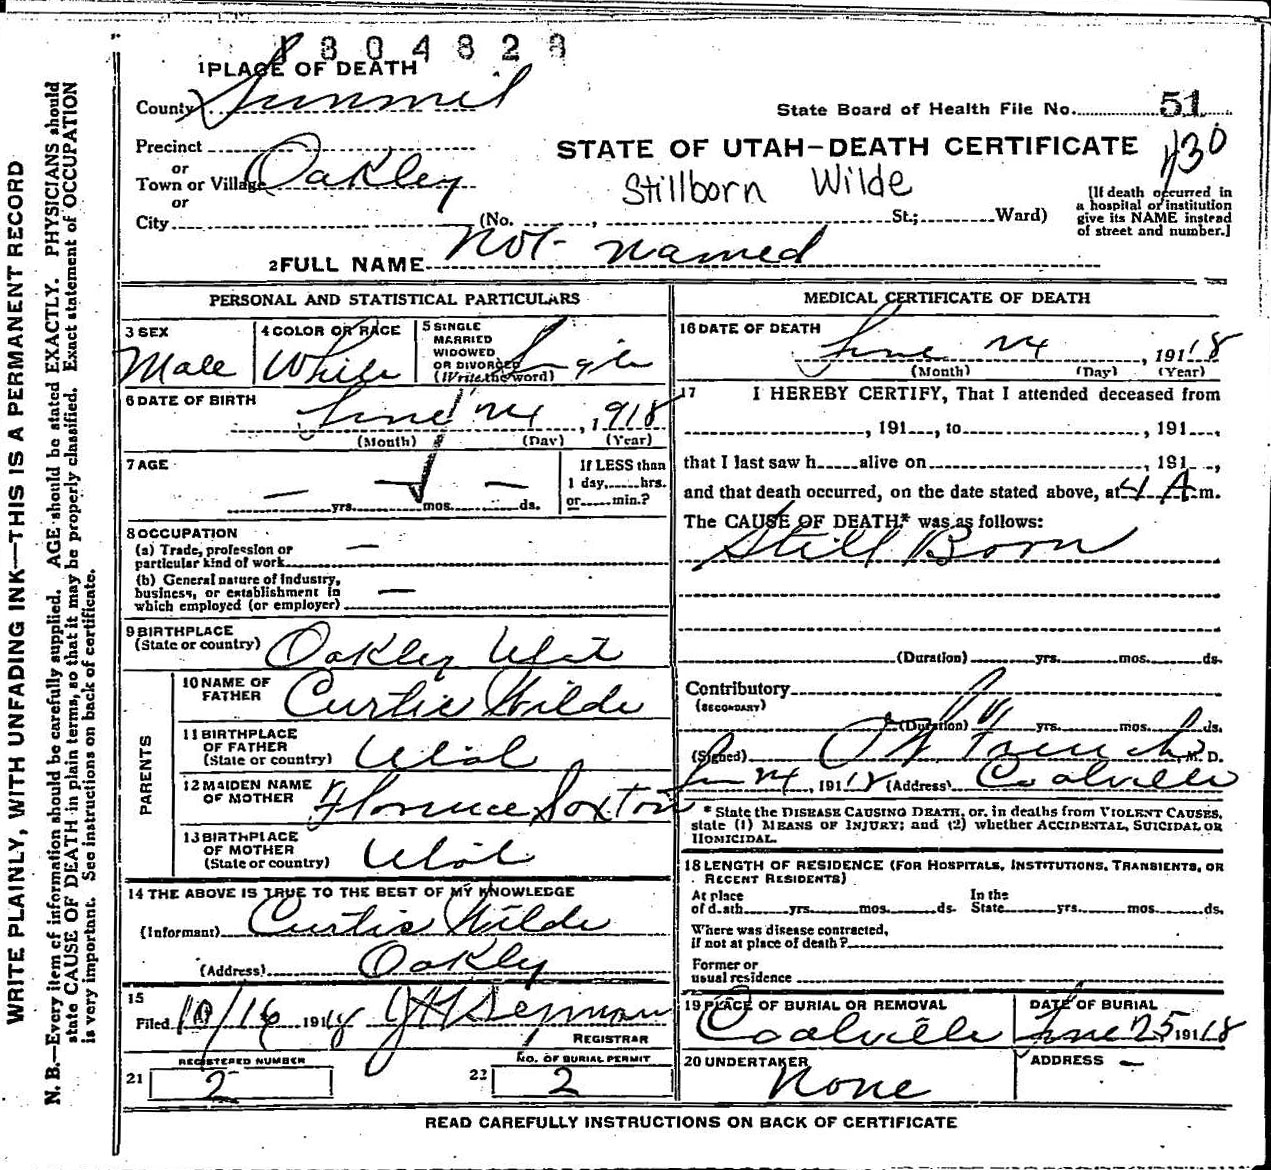 1804828
1 PLACE OF DEATH
County Summit
State Board of Health File No. 51
Precinct
STATE OF UTAH-DEATH CERTIFICATE
430
or
Town or Village Oakley
Stillborn Wilde
or
City (No. , St.; Ward)
[If death occurred in
a hospital or institution
give its NAME instead
of street and number.]
2 FULL NAME Not named
PERSONAL AND STATISTICAL PARTICULARS
3 SEX
Male
4 COLOR OR RACE
White
5 SINGLE
MARRIED
WIDOWED
OR DIVORCED
(Write the word)
Single
6 DATE OF BIRTH
June 24, 1918
(Month) (Day) (Year)
7 AGE
— yrs. — mos. — ds.
If LESS than
1 day, hrs.
or min.?
8 OCCUPATION
(a) Trade, profession or
particular kind of work —
(b) General nature of industry,
business, or establishment in
which employed (or employer) —
9 BIRTHPLACE
(State or country) Oakley Utah
PARENTS
10 NAME OF
FATHER Curtis Wilde
11 BIRTHPLACE
OF FATHER
(State or country) Utah
12 MAIDEN NAME
OF MOTHER Florence Soxton
13 BIRTHPLACE
OF MOTHER
(State or country) Utah
14 THE ABOVE IS TRUE TO THE BEST OF MY KNOWLEDGE
(Informant) Curtis Wilde
(Address) Oakley
15
Filed 10/16 1918
REGISTRAR
REGISTERED NUMBER
21 2
NO. OF BURIAL PERMIT
22 2
MEDICAL CERTIFICATE OF DEATH
16 DATE OF DEATH
June 24, 1918
(Month) (Day) (Year)
17 I HEREBY CERTIFY, That I attended deceased from
, 191 , to , 191 ,
that I last saw h alive on , 191 ,
and that death occurred, on the date stated above, at 4 A m.
The CAUSE OF DEATH* was as follows:
Still Born
(Duration) yrs. mos. ds.
Contributory
(SECONDARY)
(Duration) yrs. mos. ds.
(Signed) French M. D.
Jun 24, 1918 (Address) Coalville
* State the DISEASE CAUSING DEATH, or, in deaths from VIOLENT CAUSES,
state (1) MEANS OF INJURY; and (2) whether ACCIDENTAL, SUICIDAL OR
HOMICIDAL.
18 LENGTH OF RESIDENCE (FOR HOSPITALS, INSTITUTIONS, TRANSIENTS, OR
RECENT RESIDENTS)
At place
of death yrs. mos. ds.
In the
State yrs. mos. ds.
Where was disease contracted,
if not at place of death?
Former or
usual residence
19 PLACE OF BURIAL OR REMOVAL
Coalville
DATE OF BURIAL
June 25 1918
20 UNDERTAKER
None
ADDRESS —
READ CAREFULLY INSTRUCTIONS ON BACK OF CERTIFICATE
WRITE PLAINLY, WITH UNFADING INK—THIS IS A PERMANENT RECORD
N. B.—Every item of information should be carefully supplied. AGE should be stated EXACTLY. PHYSICIANS should
state CAUSE OF DEATH in plain terms, so that it may be properly classified. Exact statement of OCCUPATION
is very important. See instructions on back of certificate.